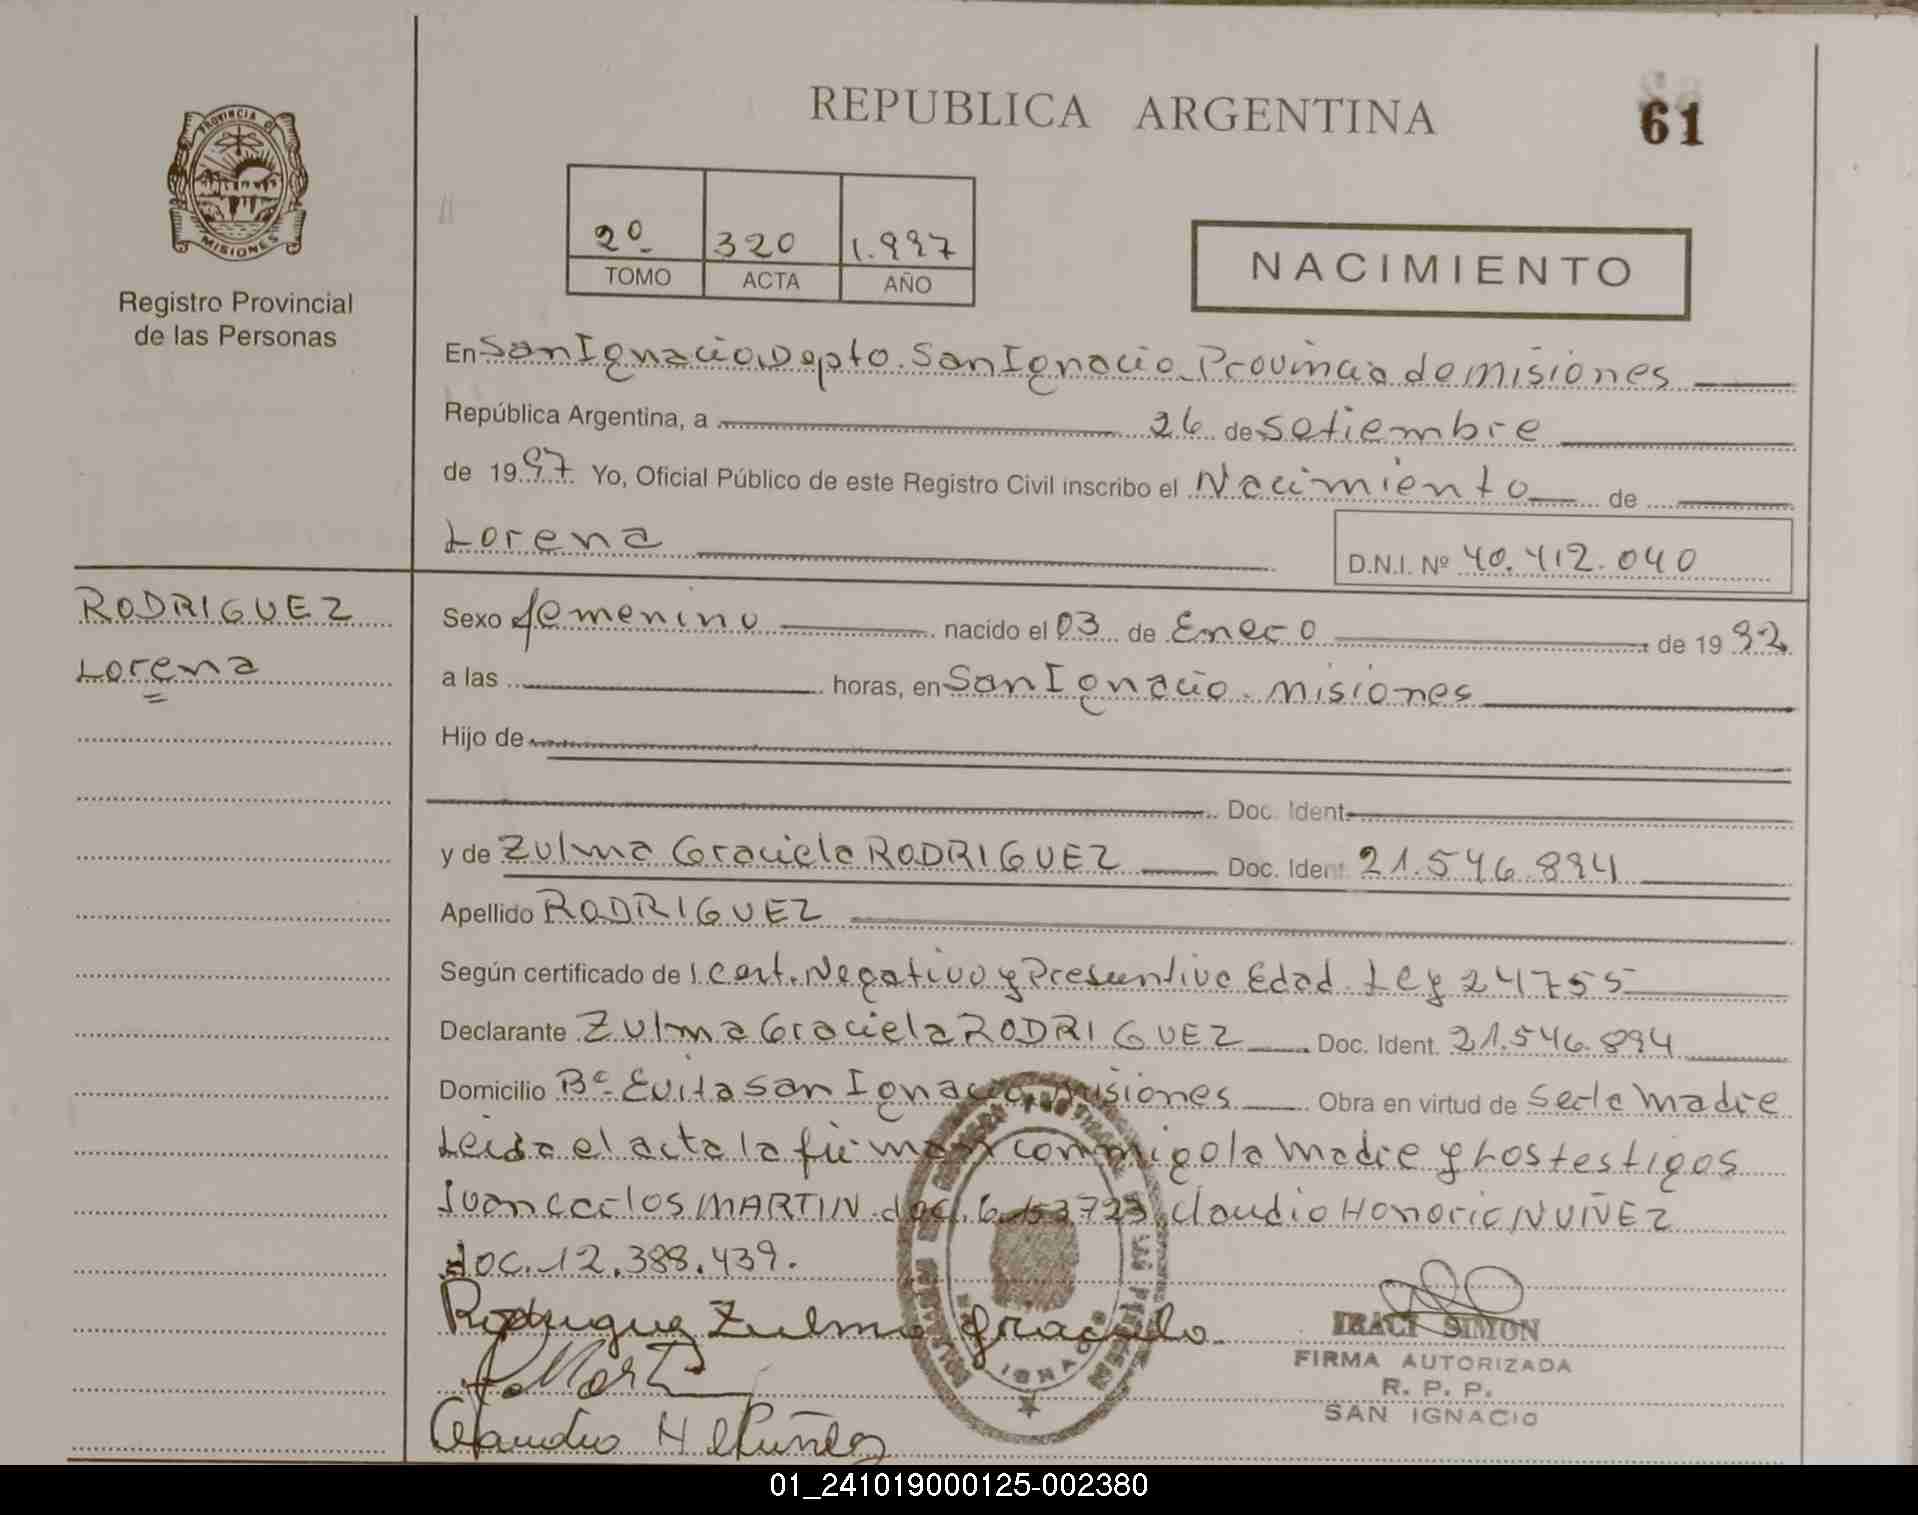 REPUBLICA ARGENTINA
61
PROVINCIA D
MISIONES
Registro Provincial
de las Personas
2º 320 1.997
TOMO ACTA AÑO
NACIMIENTO
En San Ignacio, Depto. San Ignacio Provincia de Misiones
República Argentina, a 26 de Setiembre
de 1997 Yo, Oficial Público de este Registro Civil inscribo el Nacimiento de
Lorena D.N.I. Nº 40.412.040
RODRIGUEZ
Lorena
Sexo femenino nacido el 03 de Enero de 1992
a las horas, en San Ignacio. Misiones
Hijo de
Doc. Ident.
y de Zulma Graciela RODRIGUEZ Doc. Ident. 21.546.894
Apellido RODRIGUEZ
Según certificado de 1. Cert. Negativo y Presuntivo Edad. Ley 24755
Declarante Zulma Graciela RODRIGUEZ Doc. Ident. 21.546.894
Domicilio Bº Evita San Ignacio Misiones Obra en virtud de Ser la Madre
Leida el acta la firman conmigo la Madre y Los testigos
Juan Carlos MARTIN doc. 6.153723 Claudio Honorio NUÑEZ
doc. 12.388.439.
Rodriguez Zulma Graciela
Claudio H Nuñez
IRACI SIMON
FIRMA AUTORIZADA
R. P. P.
SAN IGNACIO
01_241019000125-002380